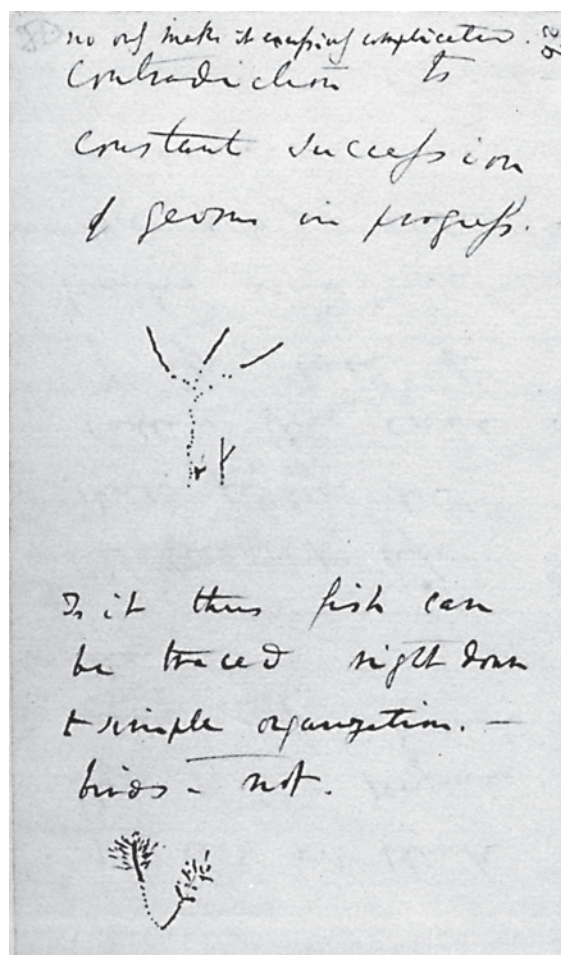 no only makes it excessively complicated. 26
Contradiction to
constant succession
of germs in progress.
Is it thus fish can
be traced right down
to simple organization. —
birds — not.